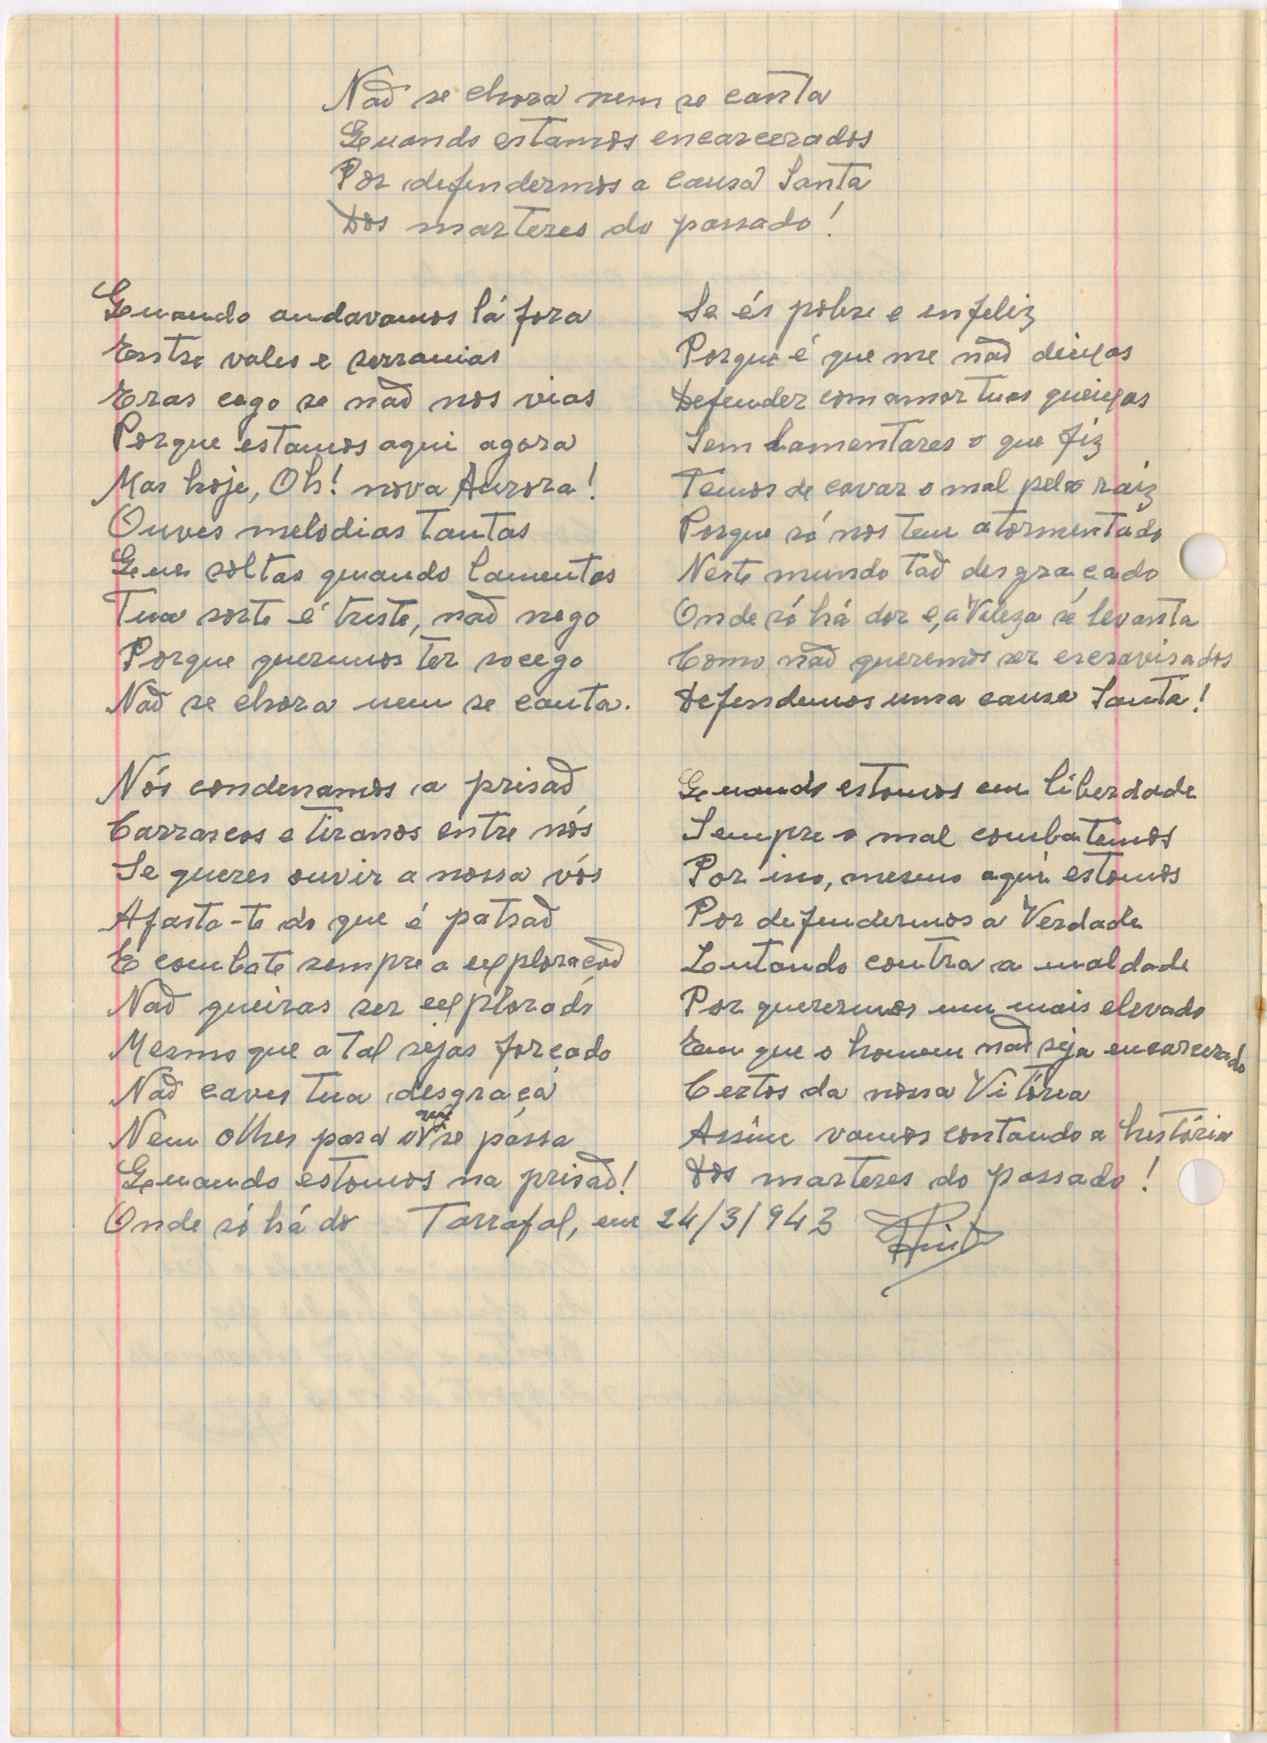 Não se chora nem se canta
Quando estamos encarcerados
Por defendermos a causa Santa
Dos marteres do passado!
Quando andavamos lá fora
Entre vales e serranias
Eras cego se não nos vias
Porque estamos aqui agora
Mas hoje, Oh! nova Aurora!
Ouves melodias tantas
Que soltas quando lamentas
Tua sorte é triste, não nego
Porque queremos ter socego
Não se chora nem se canta.
Nós condenamos a prisão
Carrascos e tiranos entre nós
Se queres ouvir a nossa vós
Afasta-te do que é patrão
E combate sempre a exploração
Não queiras ser explorado
Mesmo que a tal sejas forçado
Não caves tua desgraça
Nem olhes para o que se pássa
Quando estamos na prisão!
Onde só há do
Se és pobre e infeliz
Porque é que me não deixas
Defender com amor tuas queixas
Sem Lamentares o que fiz
Temos de cavar o mal pela raíz
Porque só nos tem atormentado
Neste mundo tão desgraçado
Onde só há dor e, a Vileza se levanta
Como não queremos ser escravisados
Defendemos uma causa Santa!
Quando estamos em liberdade
Sempre o mal combatemos
Por isso, mesmo aqui estamos
Por defendermos a Verdade
Lutando contra a maldade
Por querermos um mais elevado
Em que o homem não seja encarcerado
Certos da nossa Vitória
Assim vamos contando a história
Dos marteres do passado!
Tarrafal, em 24/3/943